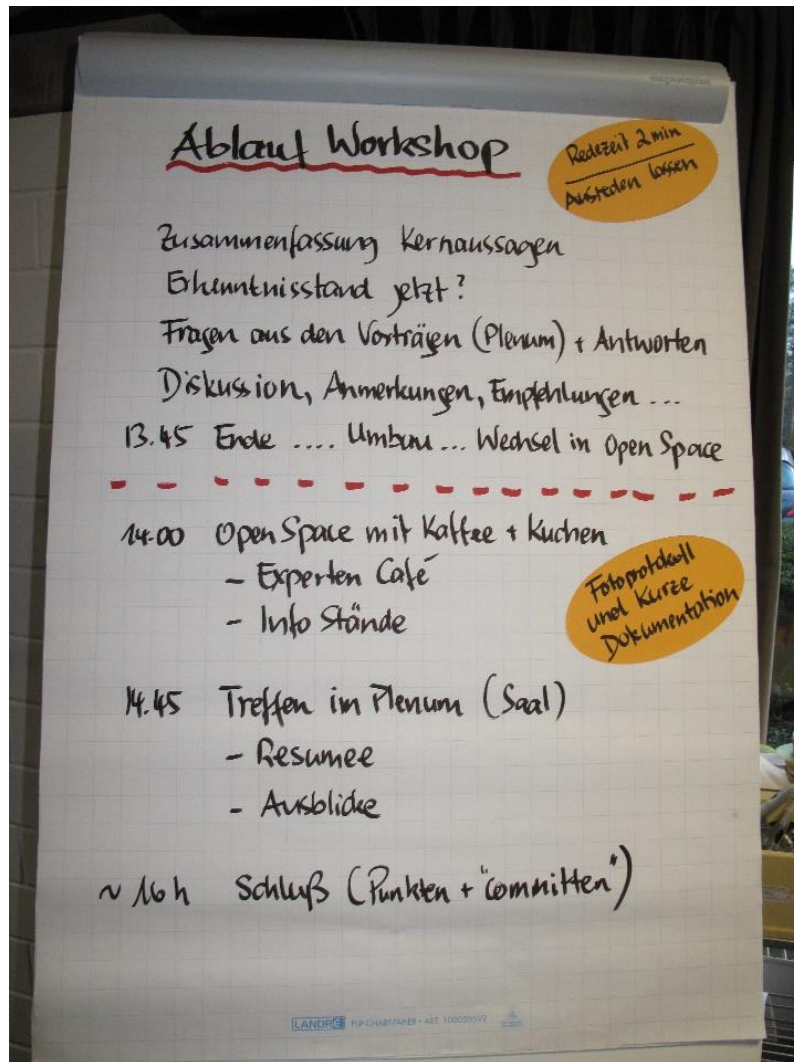 Ablauf Workshop
Redezeit 2 min
Ausreden lassen
Zusammenfassung Kernaussagen
Erkenntnisstand jetzt?
Fragen aus den Vorträgen (Plenum) + Antworten
Diskussion, Anmerkungen, Empfehlungen ...
13.45 Ende .... Umbau ... Wechsel in Open Space
14.00 Open Space mit Kaffee + Kuchen
- Experten Café
- Info Stände
Fotoprotokoll
und Kurze
Dokumentation
14.45 Treffen im Plenum (Saal)
- Resumee
- Ausblicke
~ 16 h Schluß (Punkten + "committen")
LANDRÉ FLIPCHARTPAPIER · ART. 100050592